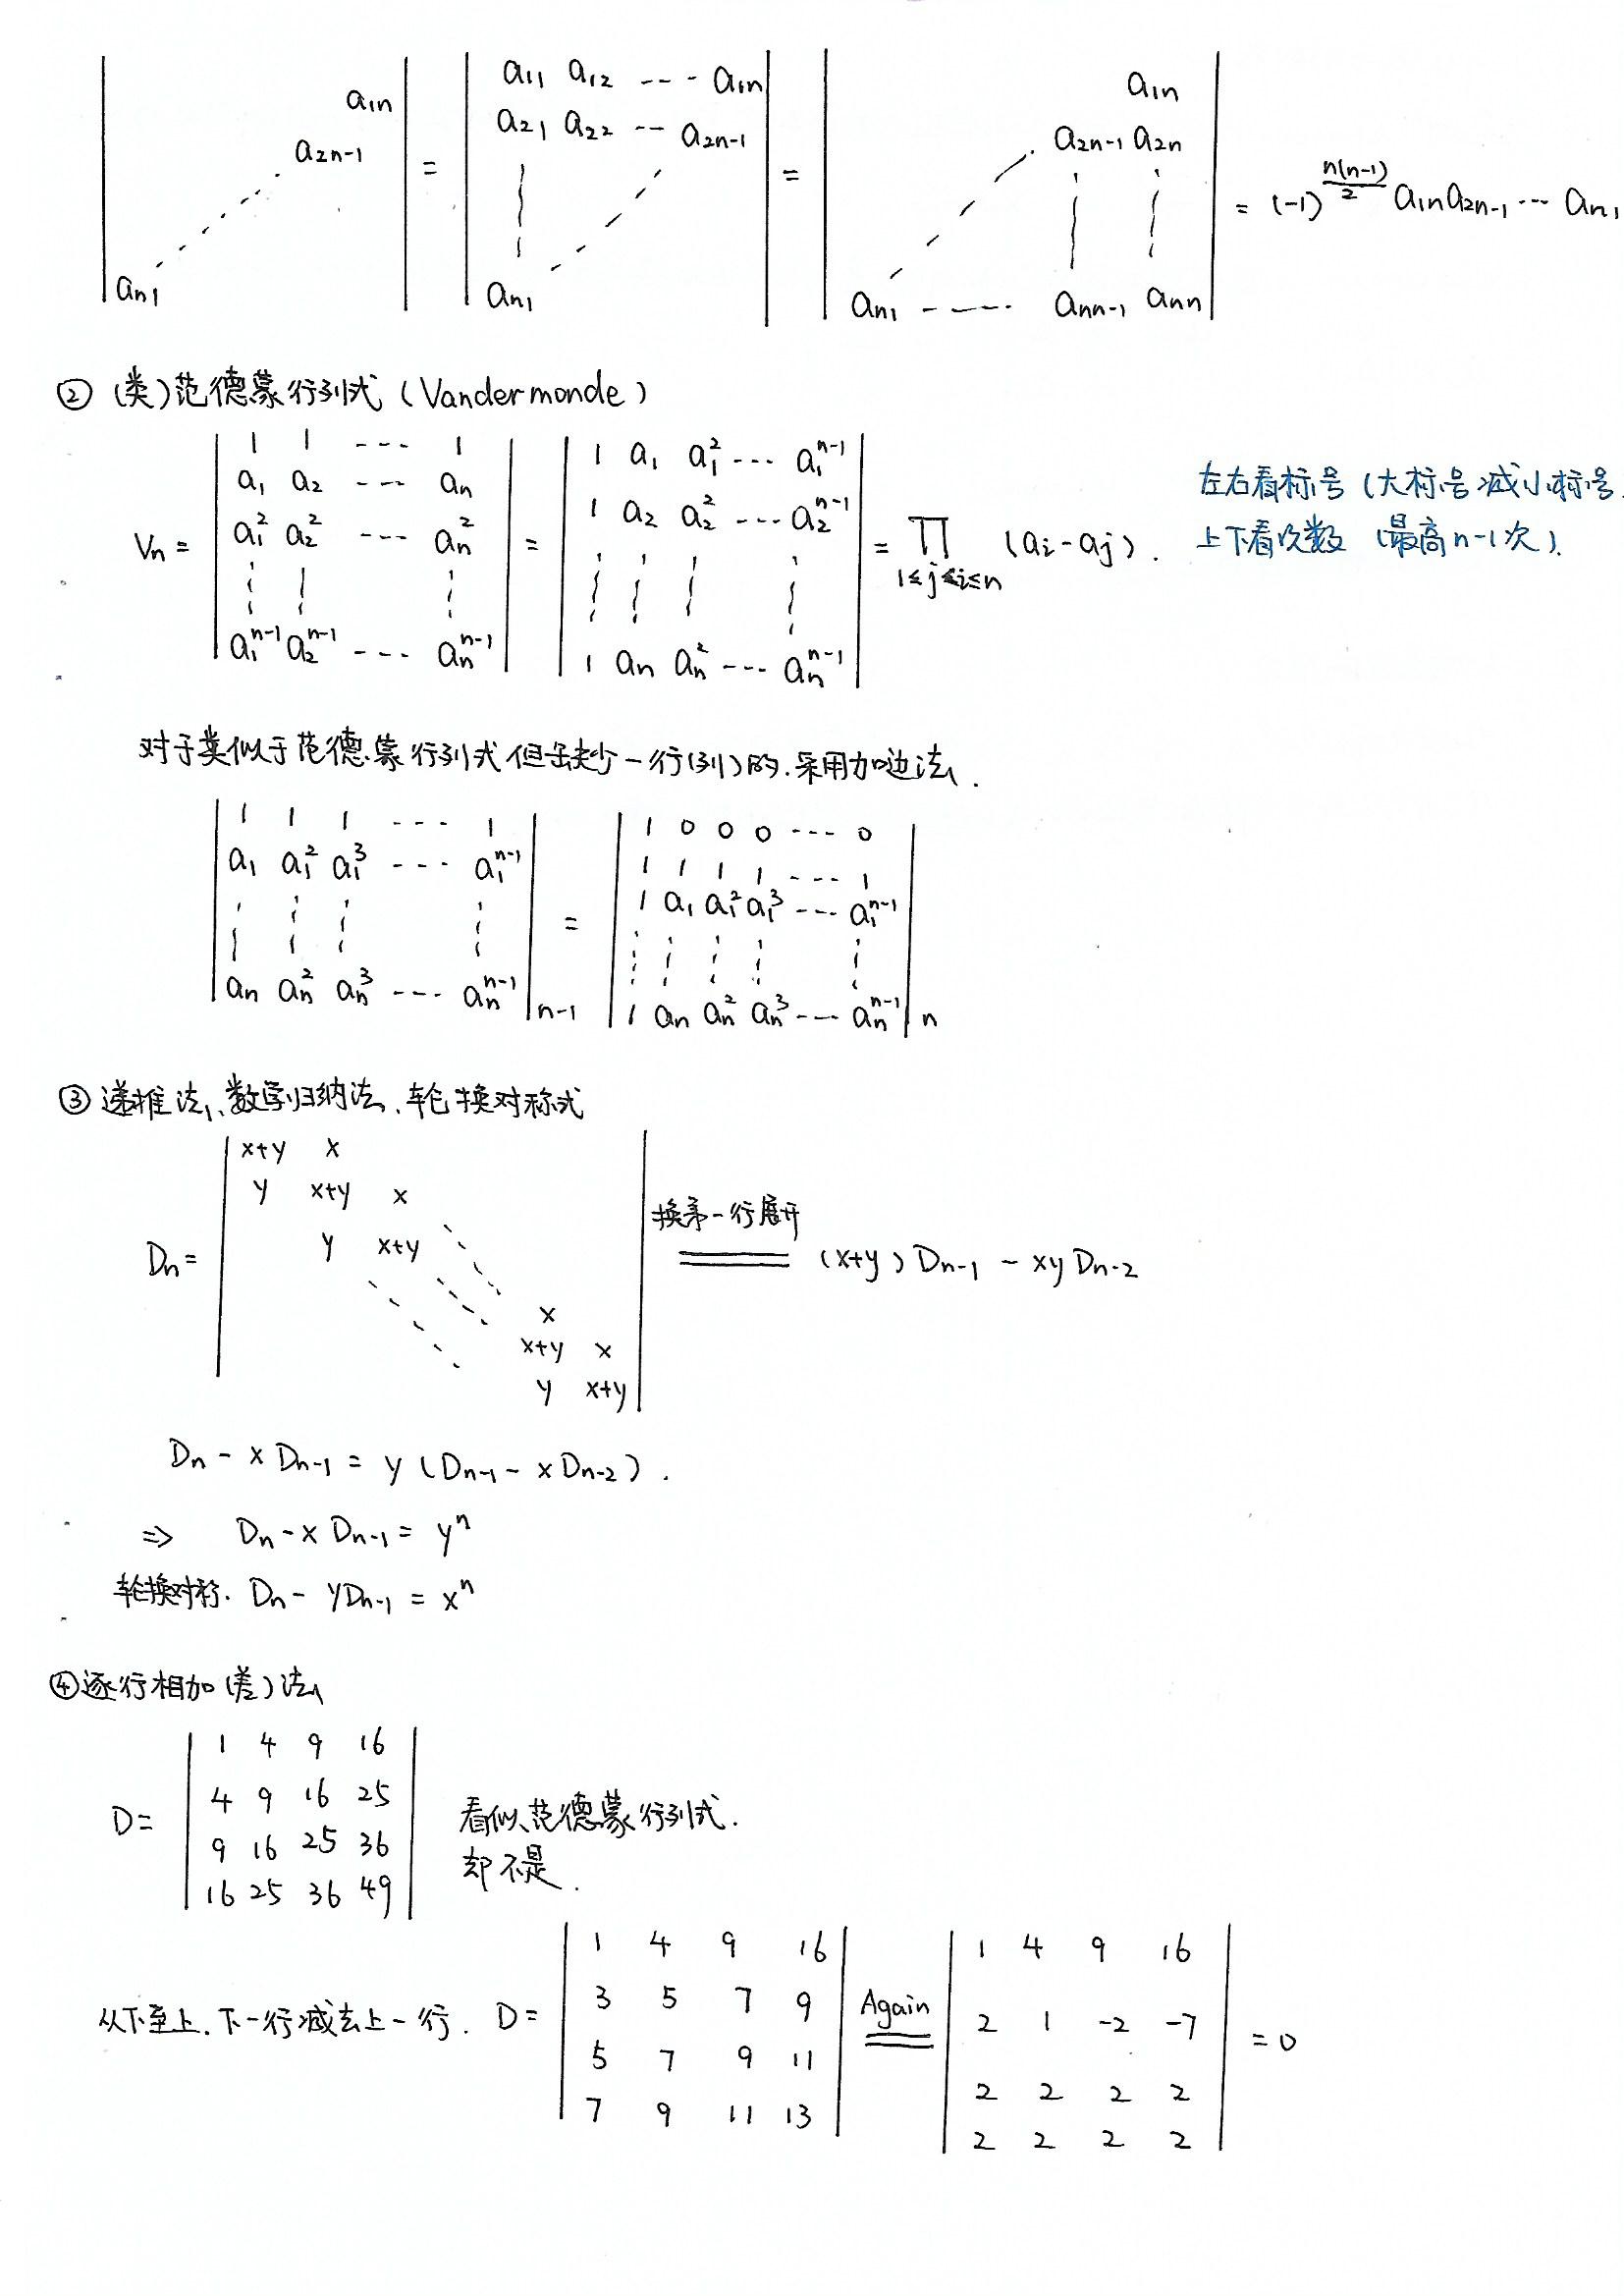 | a1n a2n-1 ⋰ an1 | = | a11 a12 ---- a1n a21 a22 -- a2n-1 ⋮ ⋰ an1 | = | a1n a2n-1 a2n ⋰ ⋮ ⋮ an1 ----- ann-1 ann | = (-1)^{n(n-1)/2} a1n a2n-1 ··· an1
② (类)范德蒙行列式 (Vandermonde)
Vn = | 1 1 --- 1
a1 a2 --- an
a1^2 a2^2 --- an^2
⋮ ⋮ ⋮
a1^{n-1} a2^{n-1} --- an^{n-1} | = | 1 a1 a1^2 --- a1^{n-1}
1 a2 a2^2 --- a2^{n-1}
⋮ ⋮ ⋮ ⋮
1 an an^2 --- an^{n-1} | = ∏ 1≤j<i≤n (ai-aj).
左右看标号 (大标号减小标号
上下看次数 (最高n-1次).
对于类似于范德蒙行列式但缺少一行(列)的.采用加边法.
| 1 1 1 ---- 1
a1 a1^2 a1^3 --- a1^{n-1}
⋮ ⋮ ⋮ ⋮
an an^2 an^3 --- an^{n-1} | n-1 = | 1 0 0 0 ---- 0
1 1 1 1 ---- 1
1 a1 a1^2 a1^3 --- a1^{n-1}
⋮ ⋮ ⋮ ⋮ ⋮
1 an an^2 an^3 --- an^{n-1} | n
③ 递推法、数学归纳法、轮换对称式
Dn = | x+y x
y x+y x
y x+y ⋱
⋱ ⋱ x
x+y x
y x+y | 按第一行展开 ══ (x+y)Dn-1 - xyDn-2
Dn - xDn-1 = y(Dn-1 - xDn-2).
⇒ Dn - xDn-1 = y^n
轮换对称. Dn - yDn-1 = x^n
④逐行相加(差)法
D= | 1 4 9 16
4 9 16 25
9 16 25 36
16 25 36 49 |
看似范德蒙行列式.
却不是.
从下至上.下一行减去上一行. D= | 1 4 9 16
3 5 7 9
5 7 9 11
7 9 11 13 | Again ══ | 1 4 9 16
2 1 -2 -7
2 2 2 2
2 2 2 2 | = 0